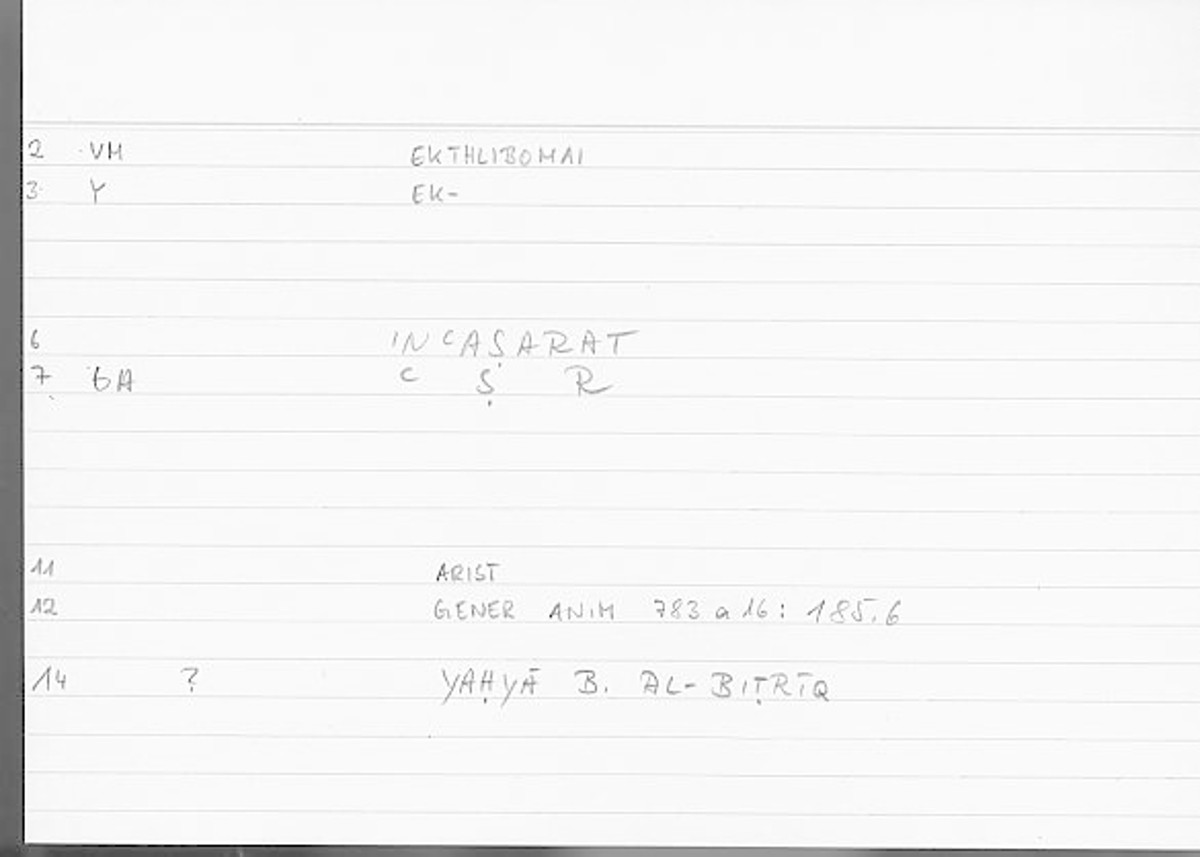 2 VM EKTHLIBOMAI
3 Y EK-
6 INᶜAṢARAT
7 GA ᶜ Ṣ R
11 ARIST
12 GENER ANIM 783 a 16: 185.6
14 ? YAḤYĀ B. AL-BIṬRĪQ